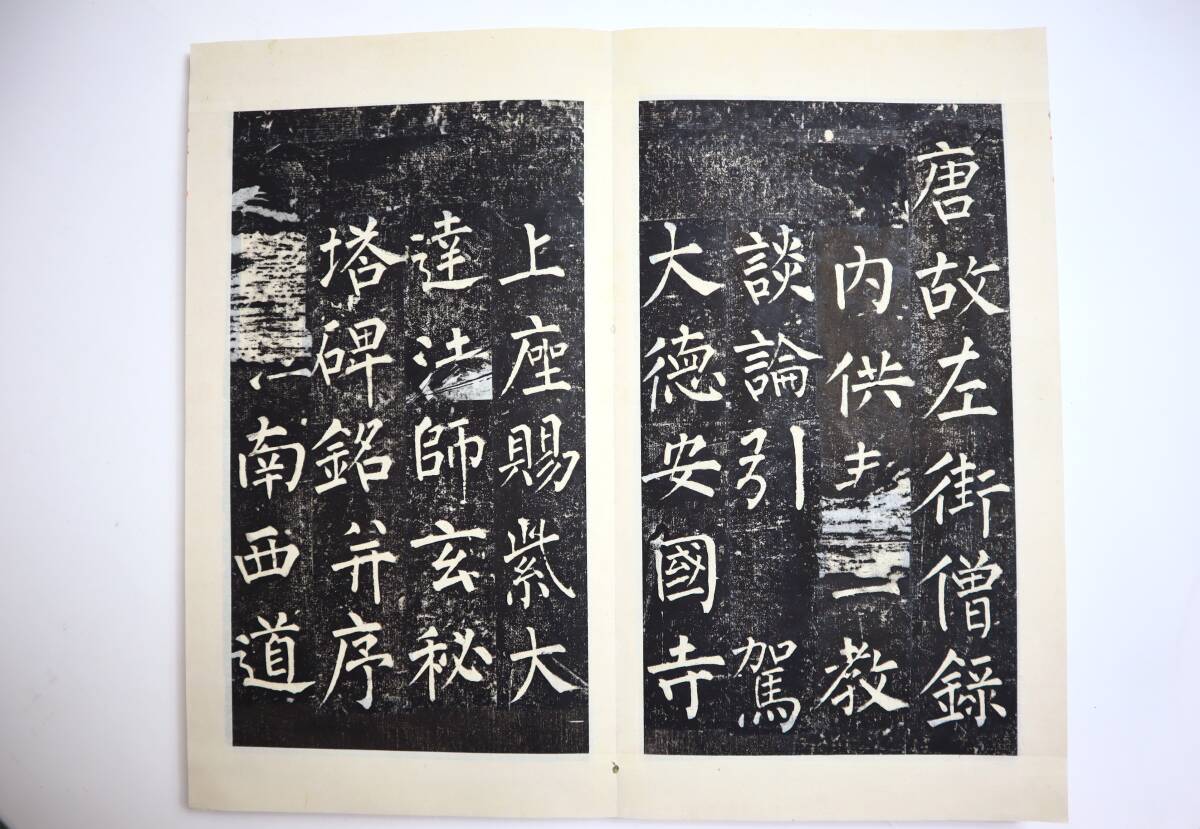 唐故左街僧錄
內供教
談論引駕
大德安國寺
上座賜紫大
達法師玄秘
塔碑銘并序
南西道